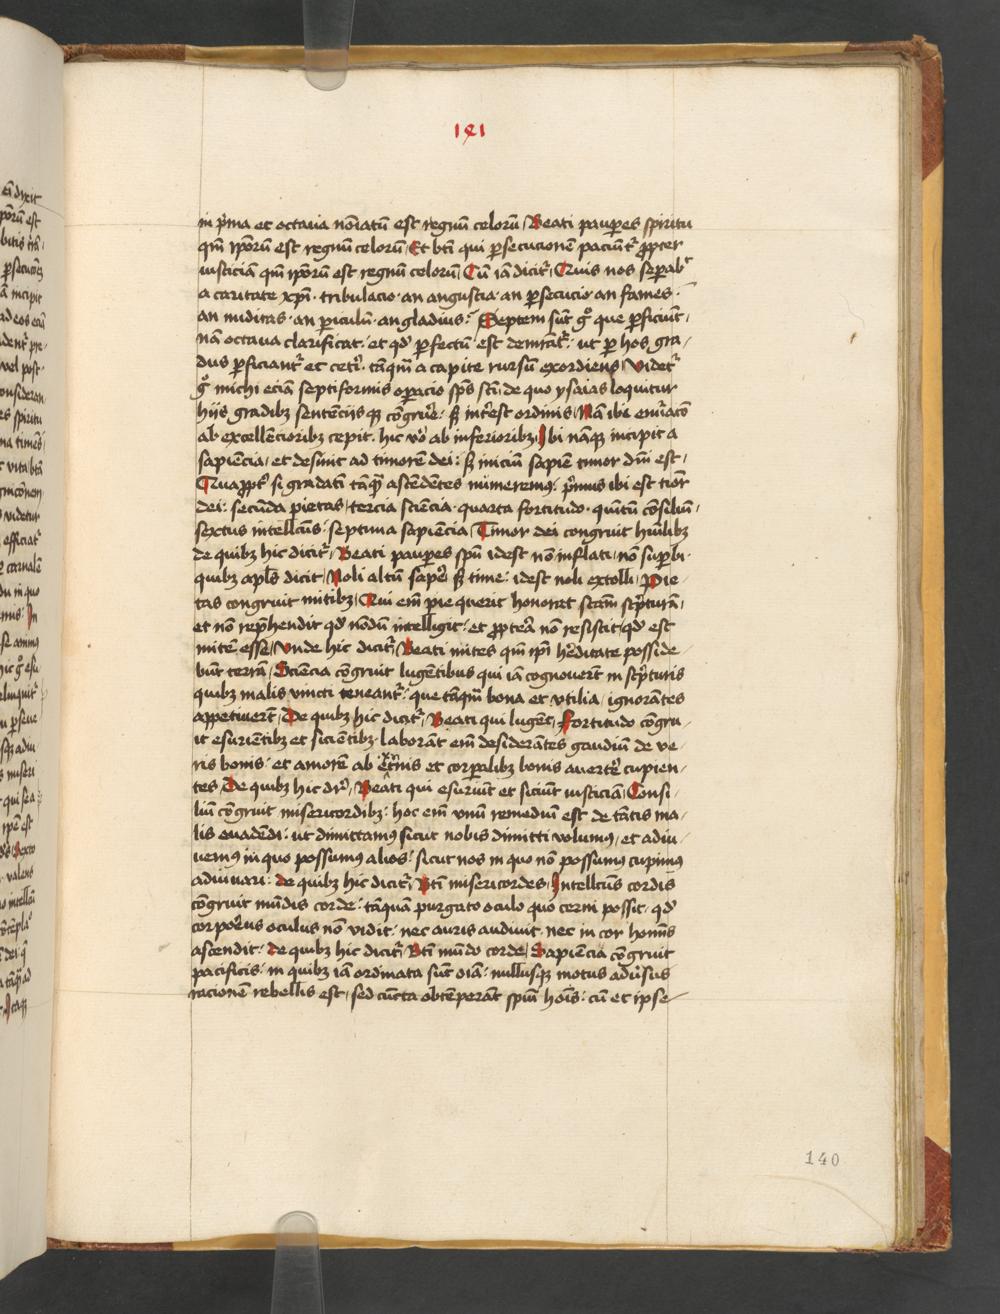 141
in p̄ma et octaua nōiatū est regnū celorū Beati pauꝑes spiritu
qm̄ ip̄orū est regnū celorū Et bt̄i qui ꝑsecucionē paciūt᷑ ꝓpter
iusticiā qm̄ ip̄orū est regnū celorū Cū iā dicit᷑ Quis nos seꝑab᷑
a caritate xp̄i · tribulacio · an angustia · an ꝑsecucio · an fames ·
an nuditas · an ꝑiculū · an gladius : Septem sūt gͦ que ꝑficiūt
nā octaua clarificat · et qd̄ ꝑfectū est demr̄at᷑ · ut ꝑ hos gra/
dus ꝑficiant᷑ et cet̄i · tāqm̄ a capite rursū exordiens Videt᷑
gͦ michi eciā septiformis oꝑacio sp̄s sc̄ti de quo ysaias loquitur
hijs gradibꝫ sentencijsqꝫ cōgrue᷑ : sꝫ int̄est ordinis Nā ibi enūac̄o
ab excellēcioribꝫ cepit · hic vͦo ab inferioribꝫ Ibi nāqꝫ incipit a
sapiēcia et desinit ad timorē dei : sꝫ iniciū sapiē timor dn̄i est
Quappt᷑ si gradatī tāqꝫ ascēdētes numeremꝰ · p̄mus ibi est tīor
dei : secūda pietas tercia sciēcia · quarta fortitudo · quītū cōsiliū
sextus intellc̄us septima sapiēcia Timor dei congruit huīlibꝫ
de quibꝫ hic dicit᷑ Beati pauꝑes spū idest nō inflati nō suꝑbi
quibꝫ apl̄s dicit Noli altū saꝑe sꝫ time : idest noli extolli Pie
tas congruit mitibꝫ Qui em̄ pie querit honorat sc̄am sc̄pturā
et nō rep̄hendit qd̄ nōdū intelligit : et ꝓpterā nō resistit qd̄ est
mitē esse Vnde hic dicit᷑ Beati mites qm̄ ip̄i h̄editate posside
būt terrā Sciēcia cōgruit lugentibus qui iā cognouerūt in sc̄pturis
quibꝫ malis vincti teneant᷑ : que tāqm̄ bona et vtilia ignorātes
appetiuerūt De quibꝫ hic dicit᷑ Beati qui lugēt Fortitudo cōgru
it esuriētibꝫ et sicientibꝫ laborāt em̄ desiderātes gaudiū de ve
ris bonis · et amorē ab et̄nis et corꝑalibꝫ bonis auertē cupien
tes De quibꝫ hic dr̄ Beati qui esuriūt et siciūt iusticiā Consi
liū cōgruit misericordibꝫ : hoc em̄ vnū remediū est de tātis ma
lis euadēdi : ut dimittamꝰ sicut nobis dimitti volumꝰ et adiu
uemꝰ in quo possumꝰ alios : sicut nos in quo nō possumꝰ cupimꝰ
adiuuari : de quibꝫ hic dicit᷑ Bt̄i misericordes Intellc̄us cordis
cōgruit mūdis corde : tāquā purgato oculo quo cerni possit · qd̄
corporeus oculus nō vidit · nec auris audiuit nec in cor homīs
ascendit : de quibꝫ hic dicit᷑ Bt̄i mūdo corde Sapiēcia cōgruit
pacificis : in quibꝫ iā ordinata sūt oīa · nullusqꝫ motus adūsus
racionē rebellis est sed cūcta obtēꝑant spūi hoīs : cū et ipse
140